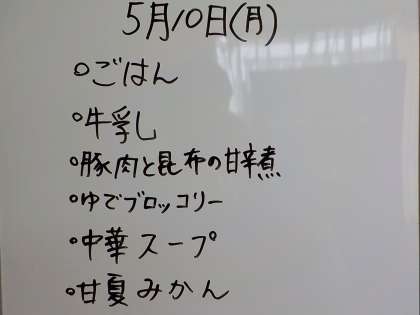 5月10日(月)
○ごはん
○牛乳
○豚肉と昆布の甘辛煮
○ゆでブロッコリー
○中華スープ
○甘夏みかん